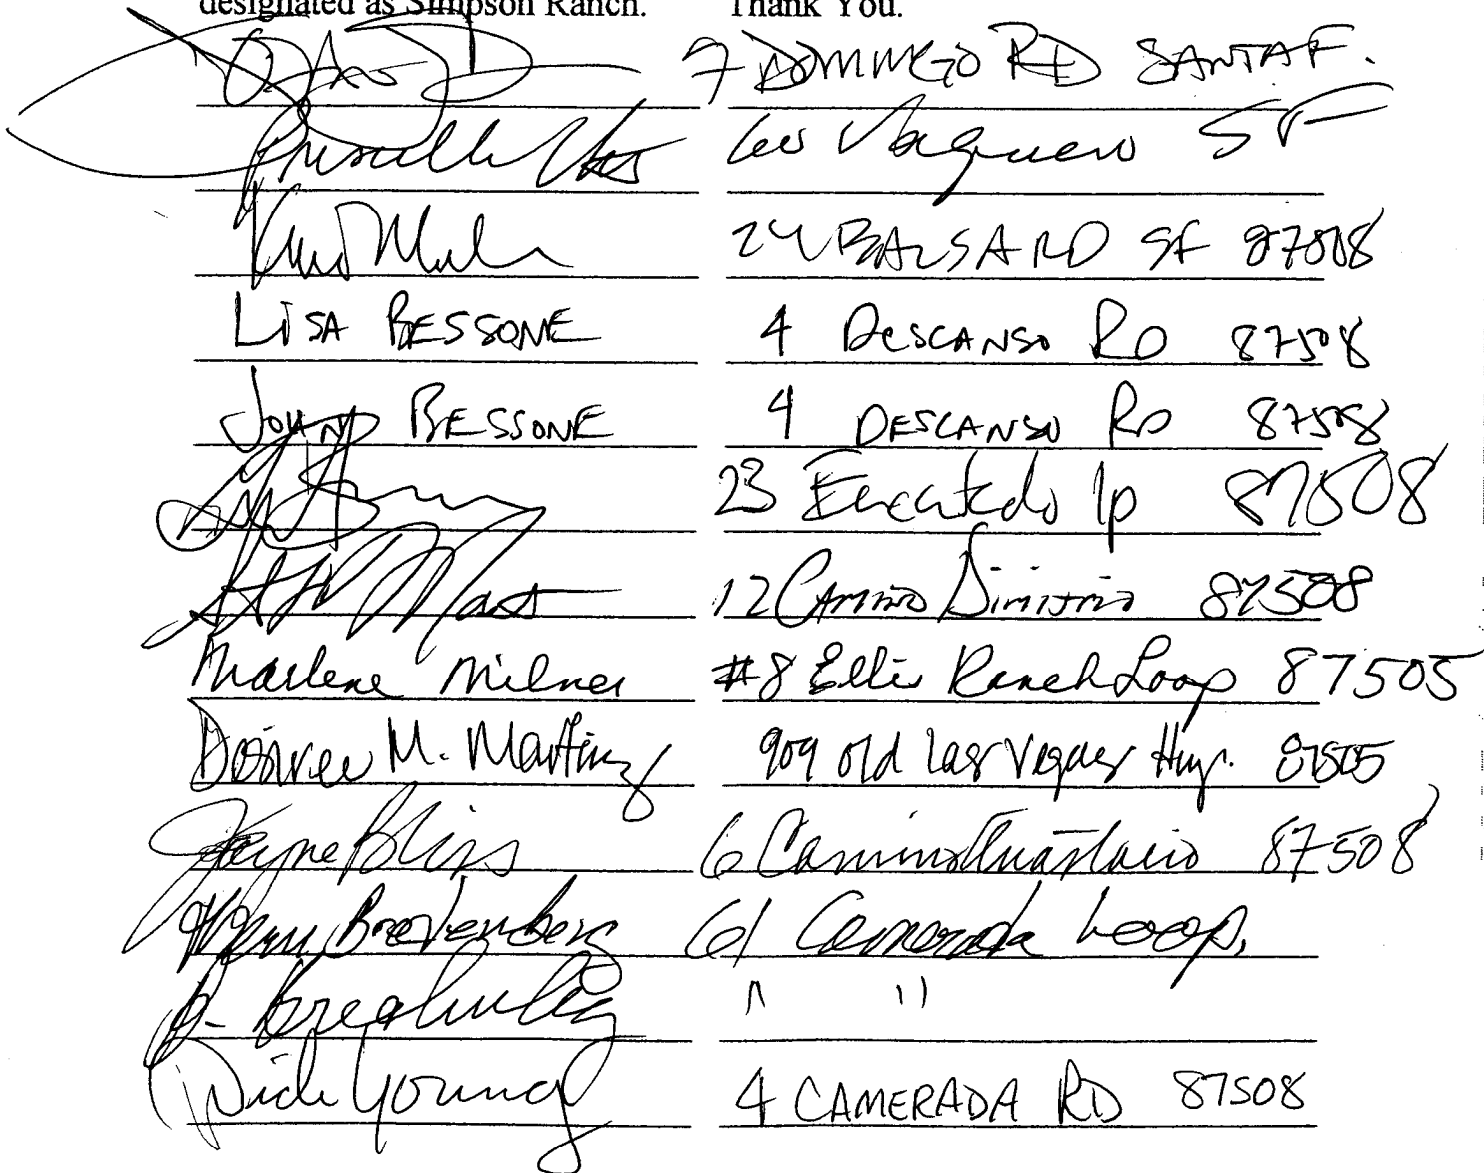 designated as Simpson Ranch. Thank You.
7 DOMINGO RD SANTA F.
Priscilla Vaquero SF
24 BALSA RD SF 87508
LiSA BESSONE 4 DESCANSO RD 87508
JOHN BESSONE 4 DESCANSO RD 87508
23 Encantado lp 87508
12 CAMINO 87508
Marlene Milner #8 Ellis Ranch Loop 87505
Desiree M. Martinez 909 old las vegas Hwy. 87505
Jayne Bliss 6 Camino 87508
61 Camerada Loop.
" "
Dick Young 4 CAMERADA RD 87508